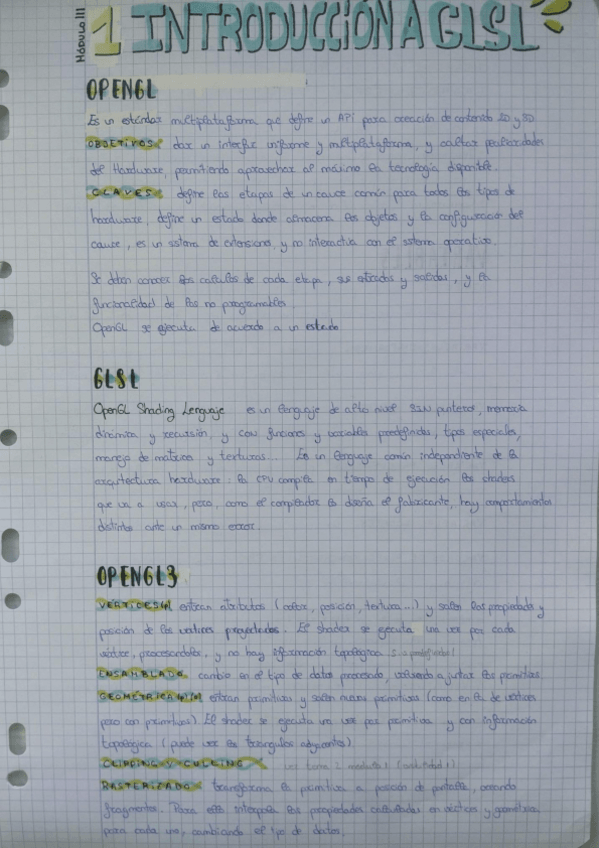 MÓDULO III
1 INTRODUCCIÓN A GLSL
OPENGL
Es un estándar multiplataforma que define un API para creación de contenido 2D y 3D
OBJETIVOS: dar un interfaz uniforme y multiplataforma, y ocultar peculiaridades
del Hardware, permitiendo aprovechar al máximo la tecnología disponible.
CLAVES: define las etapas de un cauce común para todos los tipos de
hardware, define un estado donde almacena los objetos y la configuración del
cauce, es un sistema de extensiones, y no interactúa con el sistema operativo.
Se deben conocer los cálculos de cada etapa, sus entradas y salidas, y la
funcionalidad de las no programables
OpenGL se ejecuta de acuerdo a un estado
GLSL
OpenGL Shading Lenguaje es un lenguaje de alto nivel SIN punteros, memoria
dinámica y recursión, y CON funciones y variables predefinidas, tipos especiales,
manejo de matrices y texturas... Es un lenguaje común independiente de la
arquitectura hardware: la CPU compila en tiempo de ejecución los shaders
que va a usar, pero, como el compilador lo diseña el fabricante, hay comportamientos
distintos ante un mismo error.
OPENGL3
VÉRTICES(P) entran atributos (color, posición, textura...) y salen las propiedades y
posición de los vértices proyectados. El shader se ejecuta una vez por cada
vértice, procesándolos, y no hay información topológica
ENSAMBLADO cambio en el tipo de datos procesado, volviendo a juntar las primitivas
GEOMÉTRICA entran primitivas y salen nuevas primitivas (como en la de vértices
pero con primitivas). El shader se ejecuta una vez por primitiva y con información
topológica (puede ver los triángulos adyacentes).
CLIPPING Y CULLING ver tema 1 módulo 1
RASTERIZADO transforma la primitiva a posición de pantalla, creando
fragmentos. Para ello interpola las propiedades calculadas en vértices y geometría
para cada uno, cambiando el tipo de datos.